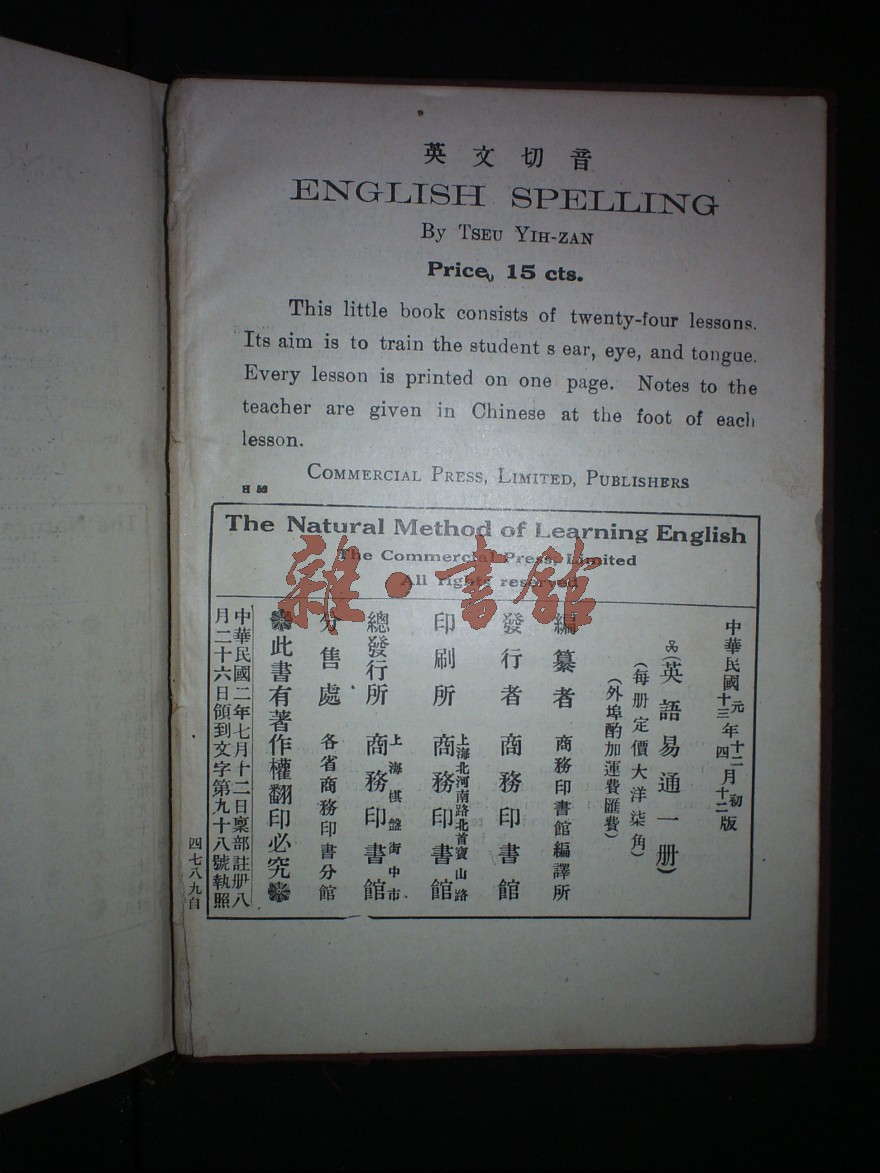 英文切音
ENGLISH SPELLING
By Tseu Yih-zan
Price, 15 cts.
This little book consists of twenty-four lessons.
Its aim is to train the student s ear, eye, and tongue.
Every lesson is printed on one page. Notes to the
teacher are given in Chinese at the foot of each
lesson.
Commercial Press, Limited, Publishers
The Natural Method of Learning English
The Commercial Press, Limited
All rights reserved
雜·書館
中華民國元年十二月初版
十三年四月十二版
(英語易通一册)
(每册定價大洋柒角)
(外埠酌加運費匯費)
編纂者 商務印書館編譯所
發行者 商務印書館
印刷所 上海北河南路北首寶山路 商務印書館
總發行所 上海棋盤街中市 商務印書館
分售處 各省商務印書分館
此書有著作權翻印必究
中華民國二年七月十二日稟部註册八
月二十六日領到文字第九十八號執照
四七八九自